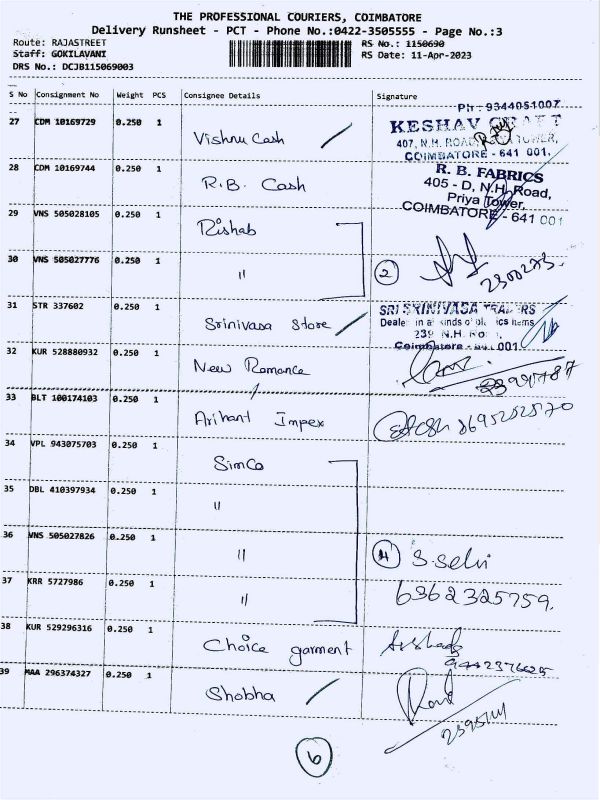 THE PROFESSIONAL COURIERS, COIMBATORE
Delivery Runsheet - PCT - Phone No.:0422-3505555 - Page No.:3
Route: RAJASTREET
RS No.: 1150690
Staff: GOKILAVANI
RS Date: 11-Apr-2023
DRS No.: DCJB115069003
S No Consignment No Weight PCS Consignee Details Signature
Ph: 9344051007
27 CDM 10169729 0.250 1 Vishnu Cash KESHAV
407, N.H. ROAD, TOWER,
COIMBATORE - 641 001.
28 CDM 10169744 0.250 1 R.B. Cash R. B. FABRICS
405 - D, N.H. Road,
Priya Tower,
COIMBATORE - 641 001
29 VNS 505028105 0.250 1 Rishab
30 VNS 505027776 0.250 1 " 2
2300273.
31 STR 337602 0.250 1 Srinivasa Store SRI SRINIVASA
Dealer in all kinds of items
239 N.H. Road,
Coimbatore - 641 001
32 KUR 528880932 0.250 1 New Romance
33 BLT 100174103 0.250 1 Arihant Impex 8695252570
34 VPL 943075703 0.250 1 Simco
35 DBL 410397934 0.250 1 "
36 VNS 505027826 0.250 1 " 4 S. Selvi
37 KRR 5727986 0.250 1 " 6362325759.
38 KUR 529296316 0.250 1 Choice garment
9442376625
39 MAA 296374327 0.250 1 Shobha
6